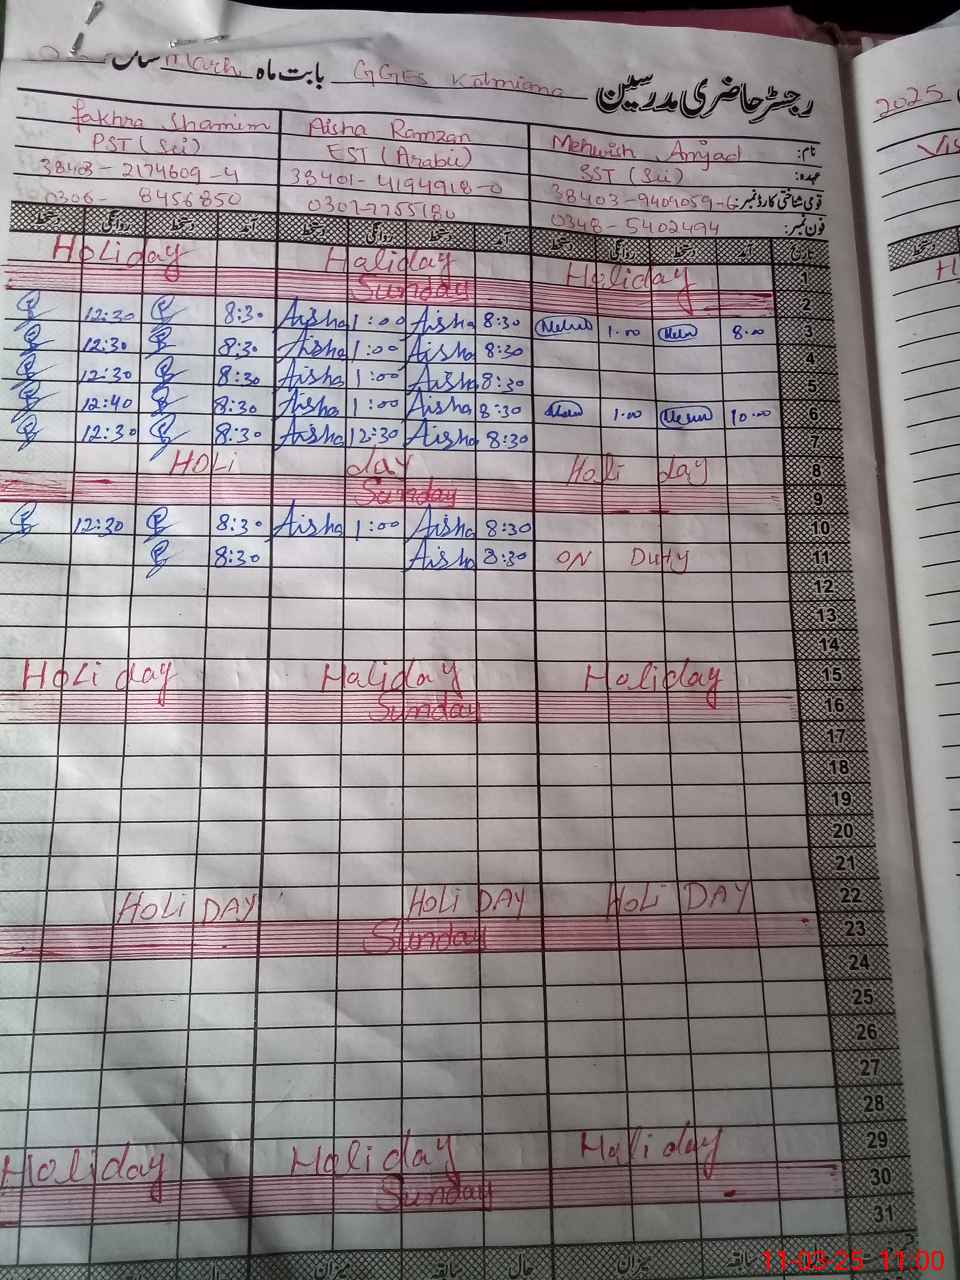 رجسٹر حاضری مدرسین GGES Kalmiana بابت ماہ March سال
2025
نام: Mehwish Amjad Aisha Ramzan Fakhra Shamim
عہدہ: SST (Sci) EST (Arabic) PST (Sci)
قومی شناختی کارڈ نمبر: 38401-4194918-0 38403-2174609-4
فون نمبر: 0348-5402494 0307-7755180 0306-8456850
تاریخ آمد دستخط روانگی دستخط آمد دستخط روانگی دستخط آمد دستخط روانگی دستخط
1 Holiday Haliday Holiday
2 Sunday
3 8:00 1:00 8:30 Aisha 1:00 Aisha 8:30 12:30
4 8:30 Aisha 1:00 Aisha 8:30 12:30
5 8:30 Aisha 1:00 Aisha 8:30 12:30
6 10:00 1:00 8:30 Aisha 1:00 Aisha 8:30 12:40
7 8:30 Aisha 12:30 Aisha 8:30 12:30
8 Holi day HOLi day
9 Sunday
10 8:30 Aisha 1:00 Aisha 8:30 12:30
11 ON Duty 8:30 Aisha 8:30
12
13
14
15 Holiday Haliday Holiday
16 Sunday
17
18
19
20
21
22 HOLi DAY HOLi DAY HOLi DAY
23 Sunday
24
25
26
27
28
29 Holiday Holiday Holiday
30 Sunday
31
میزان سابقہ حال میزان سابقہ
11-03-25 11:00